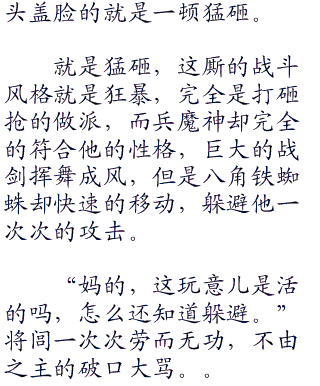 头盖脸的就是一顿猛砸。
就是猛砸，这厮的战斗
风格就是狂暴，完全是打砸
抢的做派，而兵魔神却完全
的符合他的性格，巨大的战
剑挥舞成风，但是八角铁蜘
蛛却快速的移动，躲避他一
次次的攻击。
“妈的，这玩意儿是活
的吗，怎么还知道躲避。”
将闾一次次劳而无功，不由
之主的破口大骂。。